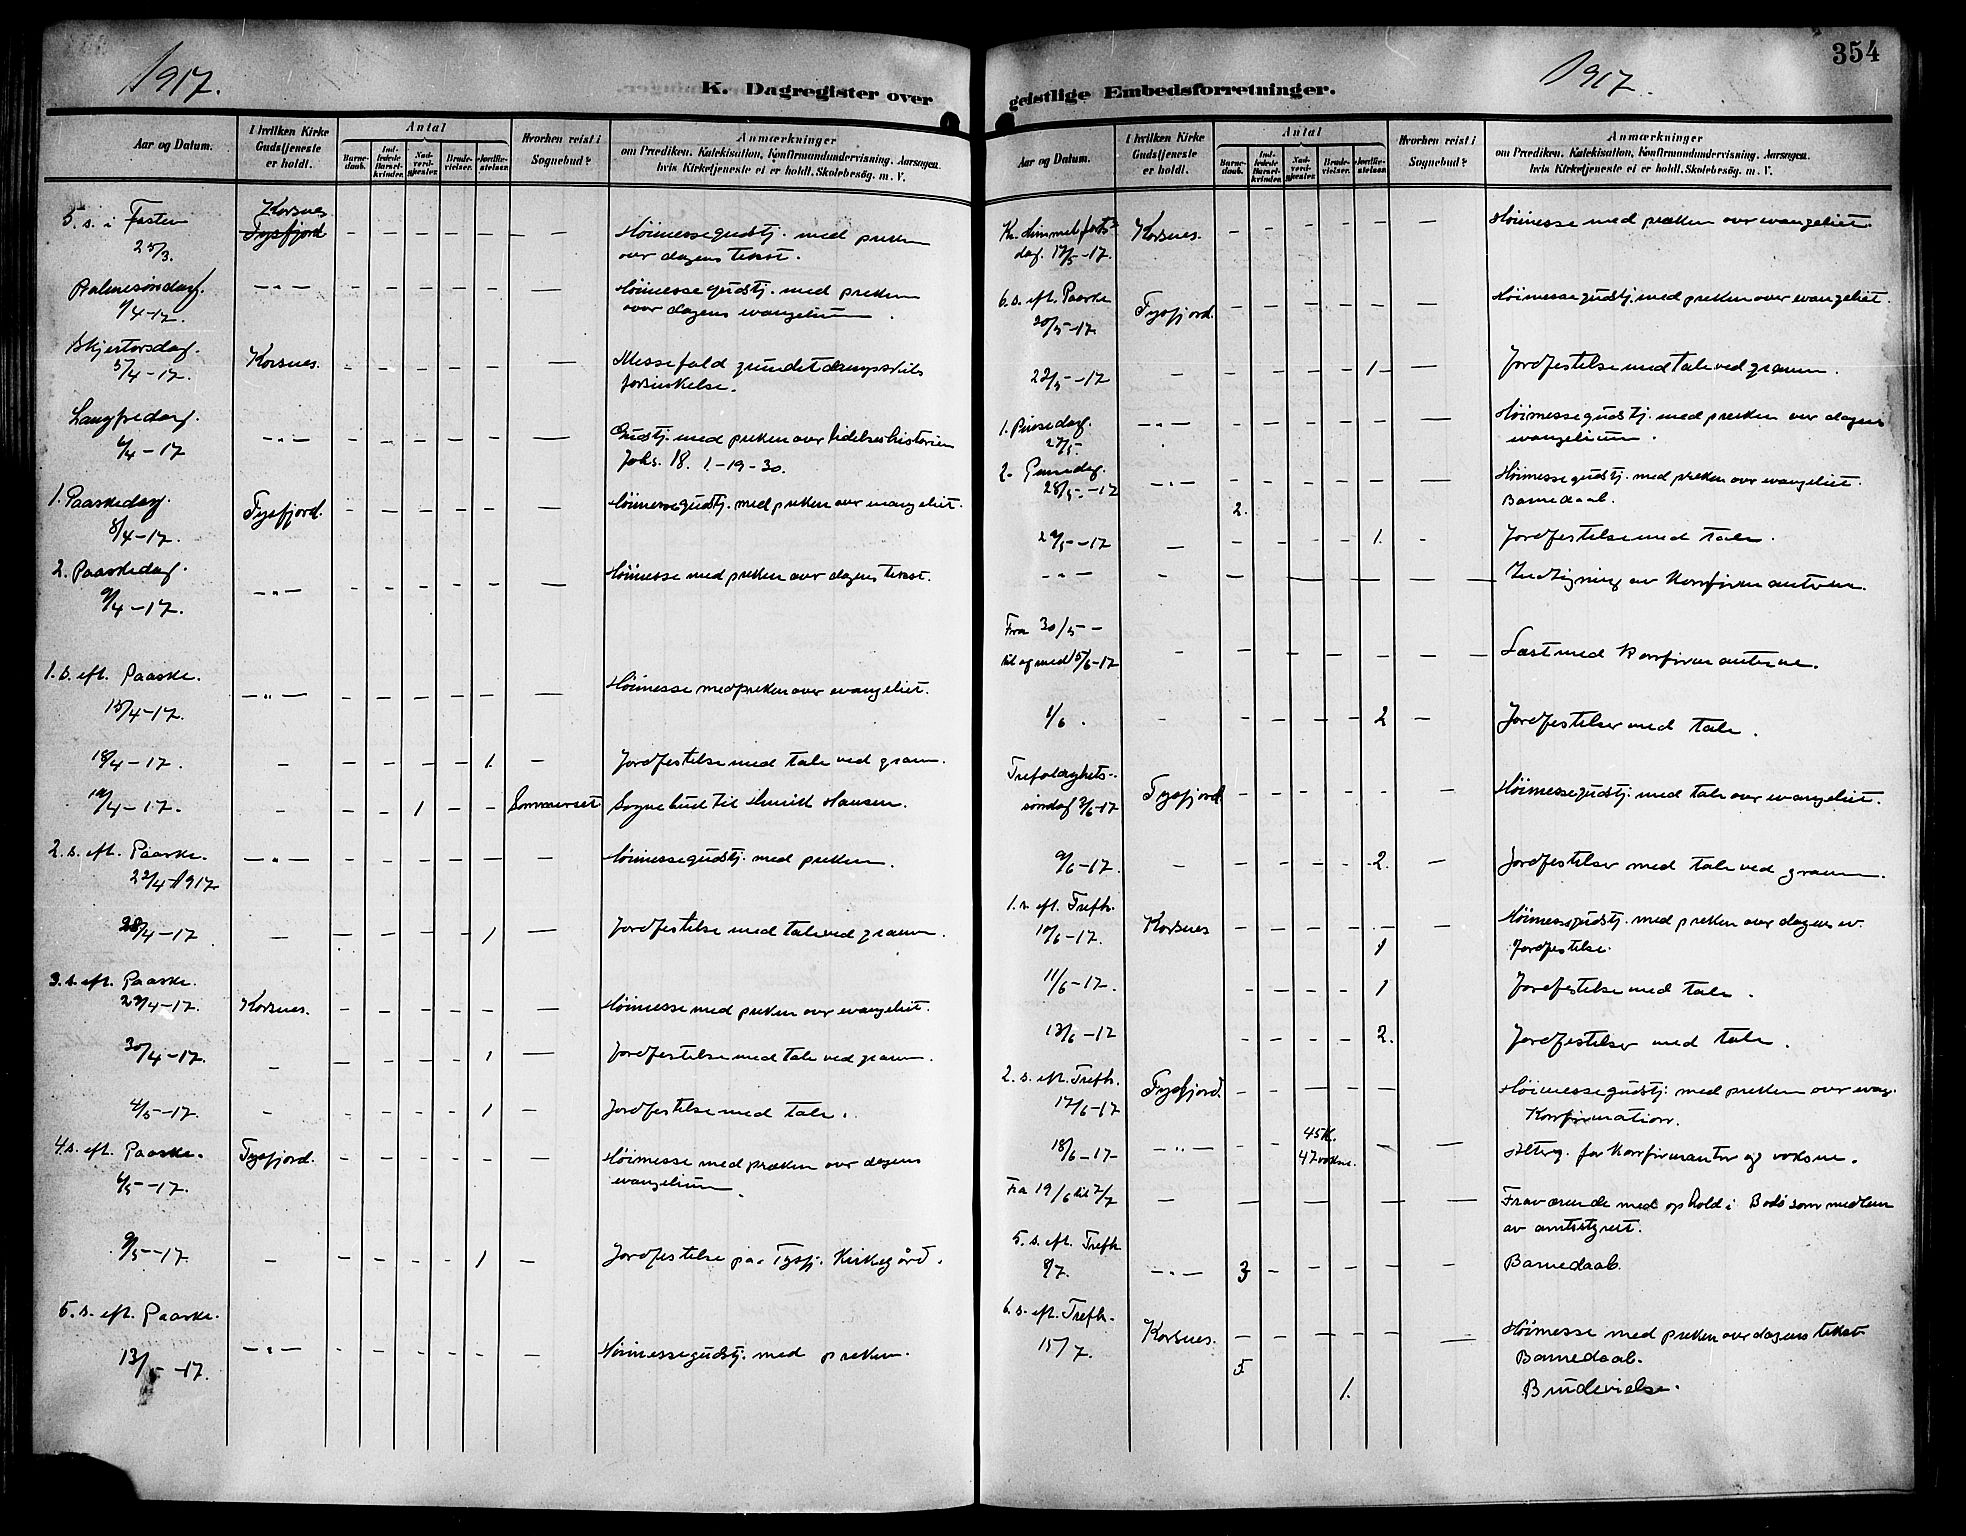 1917.
K. Dagregister over
Aar og Datum.
I hvilken Kirke Gudstjeneste er holdt.
Antal
Barnedaab.
Indledede Barselkvinder.
Nadverdgjester.
Brudevielser.
Jordfæstelser.
Hvorhen reist i Sognebud?
Anmærkninger
om Prædiken, Katekisation, Konfirmandundervisning, Aarsagen,
hvis Kirketjeneste ei er holdt, Skolebesøg, m. V.
5. s. i Fasten Korsnes
25/3. Tysfjord – – – – – – – Høimessegudstj. med preken
over dagens tekst.
Palmesøndag. – " – – – – – – – Høimessegudstj. med preken
1/4-17. over dagens evangelium.
Skjertorsdag.
5/4-17. Korsnes. – – – – – – Messefald grundet dampskibs
forsinkelse.
Langfredag.
6/4-17 – " – – – – – – – Gudstj. med preken over lidelseshistorien
Johs. 18. 1-19-30.
1. Paaskedag.
8/4-17. Tysfjord. – – – – – – Høimessegudstj. med preken over evangeliet.
2. Paaskedag.
9/4-17. – " – – – – – – – Høimesse med preken over dagens tekst.
1. s. eft. Paaske.
15/4-17. – " – – – – – – – Høimesse med preken over evangeliet.
18/4-17. – – – – – 1. – Jordfestelse med tale ved graven.
19/4-17. – – – 1 – – Sommerset Sognebud til Hansen.
2. s. eft. Paaske. – " – – – – – – – Høimessegudstj. med preken.
22/4-1917
28/4-17 – – – – – 1 – Jordfestelse med tale ved graven.
3. s. eft. Paaske.
29/4-17. Korsnes. – – – – – – Høimesse med preken over evangeliet.
30/4-17. – – – – – 1 – Jordfestelse med tale ved graven.
4/5-17. – – – – – 1 – Jordfestelse med tale.
4. s. eft. Paaske. Tysfjord. – – – – – – Høimesse med preken over dagens
6/5-17. evangelium.
9/5-17. – – – – – 1 – Jordfestelse på Tysfj. Kirkegård.
5. s. eft. Paaske.
13/5-17. – " – – – – – – – Høimessegudstj. med preken.
1917.
354
geistlige Embedsforretninger.
Aar og Datum.
I hvilken Kirke Gudstjeneste er holdt.
Antal
Barnedaab.
Indledede Barselkvinder.
Nadverdgjester.
Brudevielser.
Jordfæstelser.
Hvorhen reist i Sognebud?
Anmærkninger
om Prædiken, Katekisation, Konfirmandundervisning, Aarsagen,
hvis Kirketjeneste ei er holdt, Skolebesøg, m. V.
Kr. Himmelfarts-
dag. 17/5-17. Korsnes. – – – – – – Høimesse med preken over evangeliet.
6. s. eft. Paaske
20/5-17. Tysfjord. – – – – – – Høimessegudstj. med preken over evangeliet.
22/5-17 – – – – – 1 – Jordfestelse med tale ved graven.
1. Pinsedag. – " – – – – – – – Høimessegudstj. med preken over dagens
27/5- evangelium.
2. Pinsedag.
28/5-17 – " – – – – – – – Høimessegudstj. med preken over evangeliet.
2. Barnedaab.
29/5-17 – – – – – 1. – Jordfestelse med tale.
– " – – – – – – – – Indtegning av Konfirmantene.
Fra 30/5-
til og med 15/6-17 – – – – – – – Læst med Konfirmantene.
1/6. – – – – – 2 – Jordfestelser med tale.
Trefoldighets-
søndag 3/6-17 Tysfjord – – – – – – Høimessegudstj. med tale over evangeliet.
9/6-17. – – – – – 2. – Jordfestelser med tale ved graven.
1. s. eft. Trefh.
10/6-17. Korsnes – – – – – – Høimessegudstj. med preken over dagens ev.
1 Jordfestelse.
11/6-17. – – – – 1 Jordfestelse med tale.
13/6-17 – – – – 2. Jordfestelser med tale.
2. s. eft. Trefh.
17/6-17 Tysfjord. – – – – – Høimessegudstj. med preken over evang.
Konfirmation.
18/6-17- – " – – – 45 K. 47 voksne. – – Alterg. for Konfirmanter og voksne.
Fra 19/6 til 7/7 – – – – – – – Fraværende med ophold i Bodø som medlem
av amtstyret.
5. s. eft. Trefh
8/7. – " – 3 – – – – – Barnedaab.
6. s. eft. Trefh.
15/7. Korsnes. – – – – – – Høimesse med preken over dagens tekst
5 Barnedaab.
1. Brudevielse.